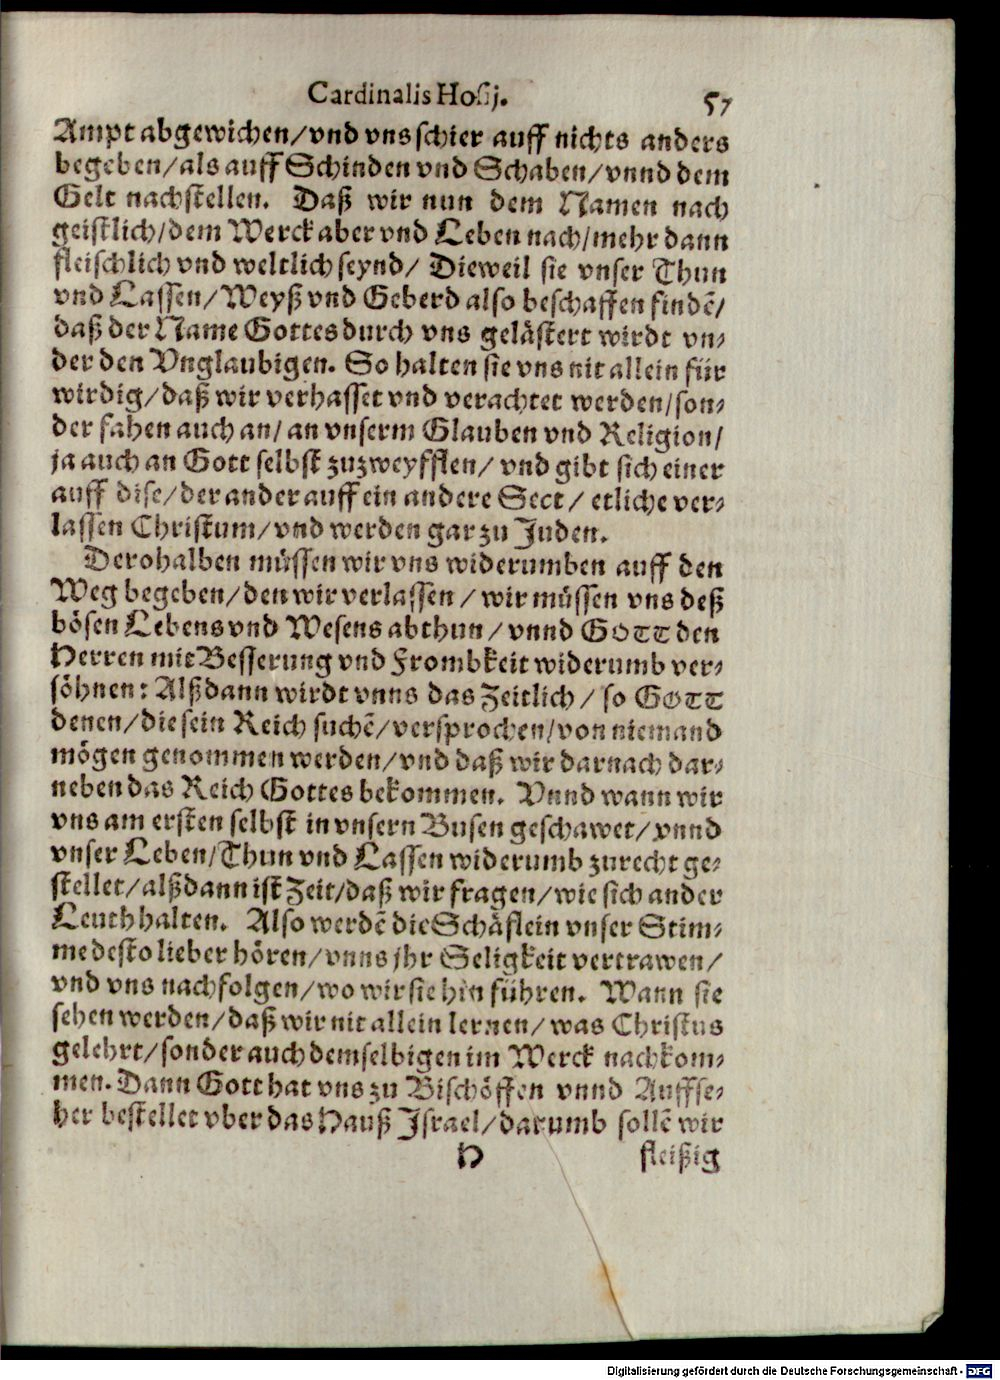 Cardinalis Hosij. 57
Ampt abgewichen/vnd vns schier auff nichts anders
begeben/als auff Schinden vnd Schaben/vnnd dem
Gelt nachstellen. Daß wir nun dem Namen nach
geistlich/dem Werck aber vnd Leben nach/mehr dann
fleischlich vnd weltlich seynd/ Dieweil sie vnser Thun
vnd Lassen/Weyß vnd Geberd also beschaffen findē/
daß der Name Gottes durch vns gelästert wirdt vn-
der den Vnglaubigen. So halten sie vns nit allein für
wirdig/daß wir verhasset vnd verachtet werden/son-
der fahen auch an/ an vnserm Glauben vnd Religion/
ja auch an Gott selbst zuzweyfflen/ vnd gibt sich einer
auff dise/der ander auff ein andere Sect/ etliche ver-
lassen Christum/vnd werden gar zu Juden.
Derohalben müssen wir vns widerumben auff den
Weg begeben/den wir verlassen/ wir müssen vns deß
bösen Lebens vnd Wesens abthun/ vnnd GOTT den
Herren mit Besserung vnd Frombkeit widerumb ver-
söhnen: Alßdann wirdt vnns das Zeitlich/ so GOTT
denen/die sein Reich suchē/versprochen/von niemand
mögen genommen werden/vnd daß wir darnach dar-
neben das Reich Gottes bekommen. Vnnd wann wir
vns am ersten selbst in vnsern Busen geschawet/vnnd
vnser Leben/Thun vnd Lassen widerumb zurecht ge-
stellet/alßdann ist Zeit/daß wir fragen/wie sich ander
Leuth halten. Also werdē die Schäflein vnser Stim-
me desto lieber hören/vnns jhr Seligkeit vertrawen/
vnd vns nachfolgen/wo wir sie hin führen. Wann sie
sehen werden/daß wir nit allein lernen/was Christus
gelehrt/sonder auch demselbigen im Werck nachkom-
men. Dann Gott hat vns zu Bischöffen vnnd Auffse-
her bestellet vber das Hauß Israel/darumb sollē wir
H fleißig
Digitalisierung gefördert durch die Deutsche Forschungsgemeinschaft - DFG